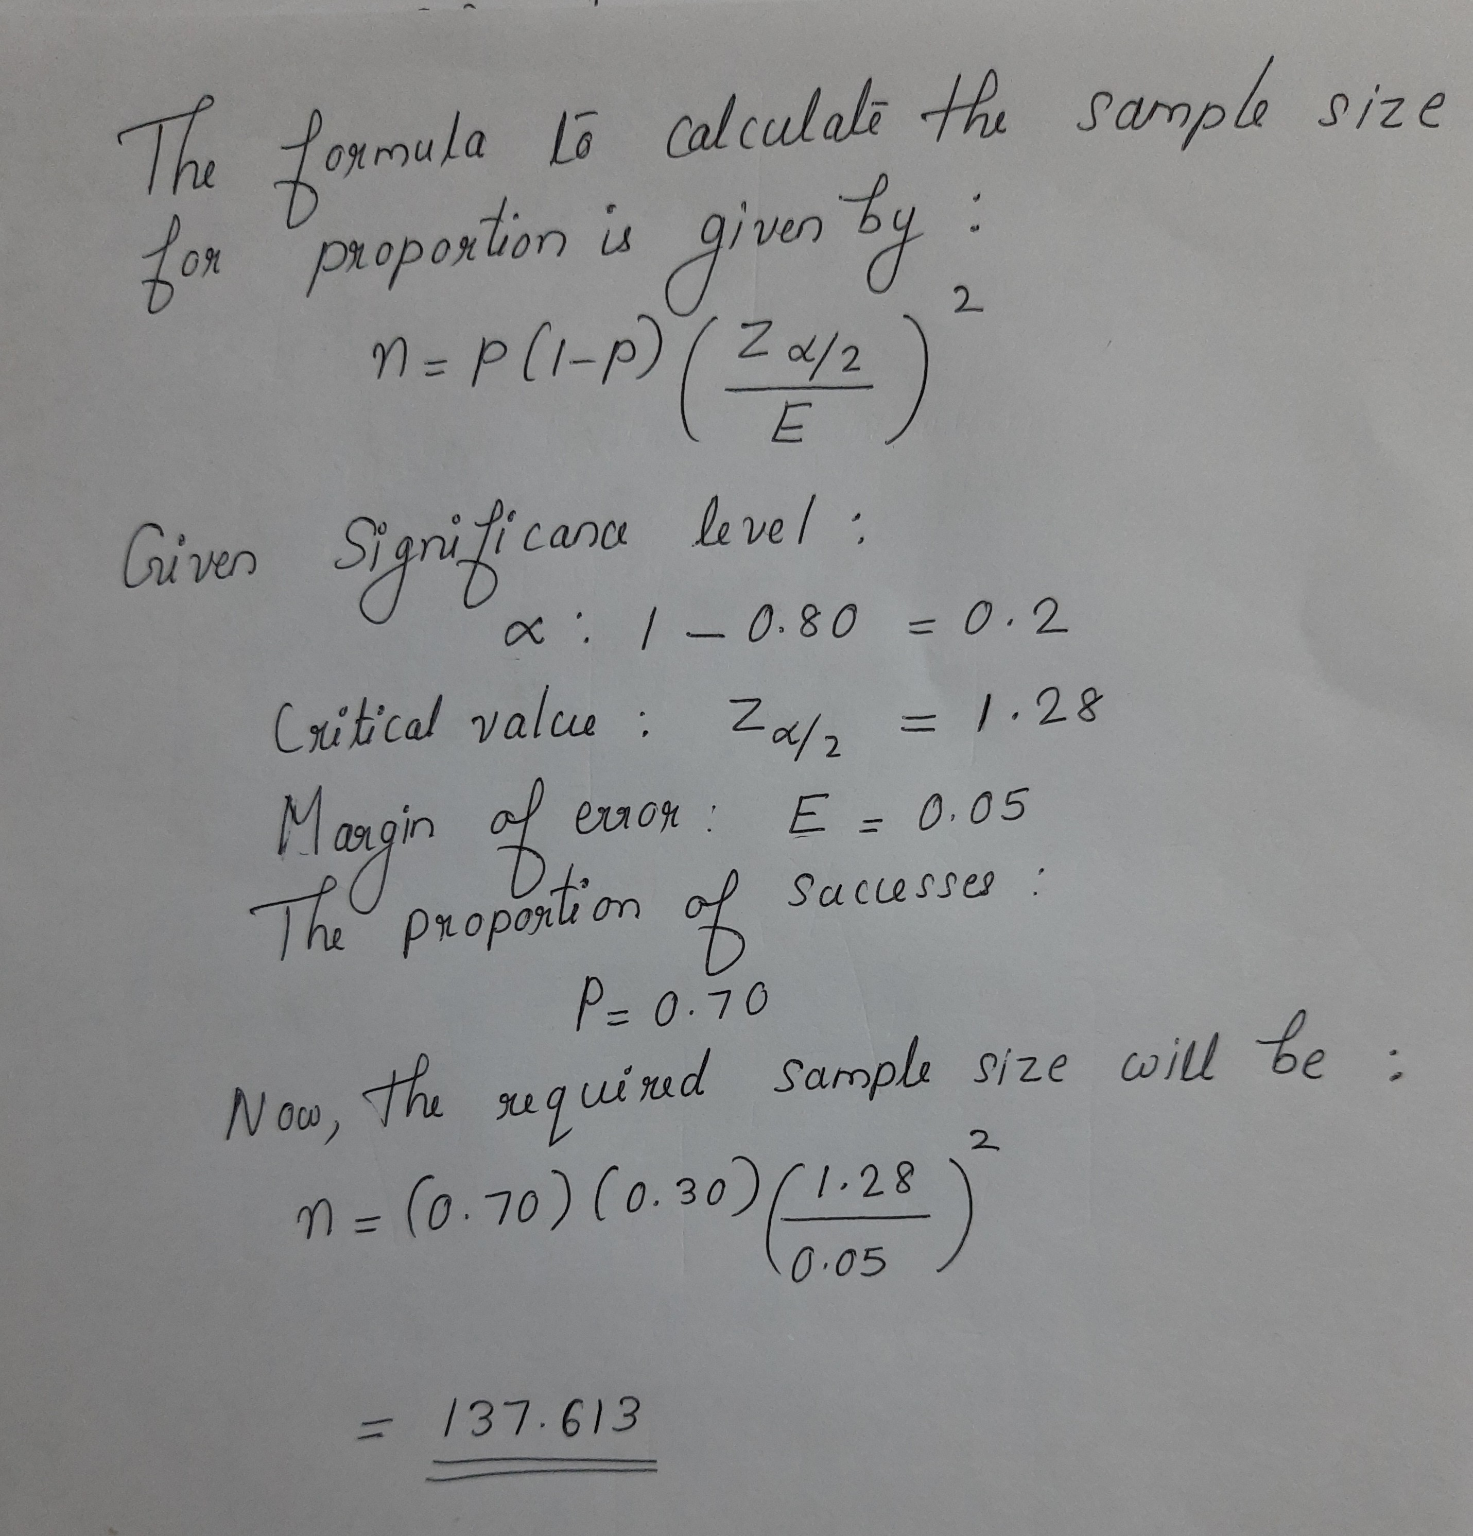 The formula to calculate the sample size
for proportion is given by :
n = p(1-p) (Zα/2 / E)²
Given Significance level :
α : 1 - 0.80 = 0.2
Critical value : Zα/2 = 1.28
Margin of error : E = 0.05
The proportion of successes :
P = 0.70
Now, the required sample size will be :
n = (0.70) (0.30) (1.28 / 0.05)²
= 137.613